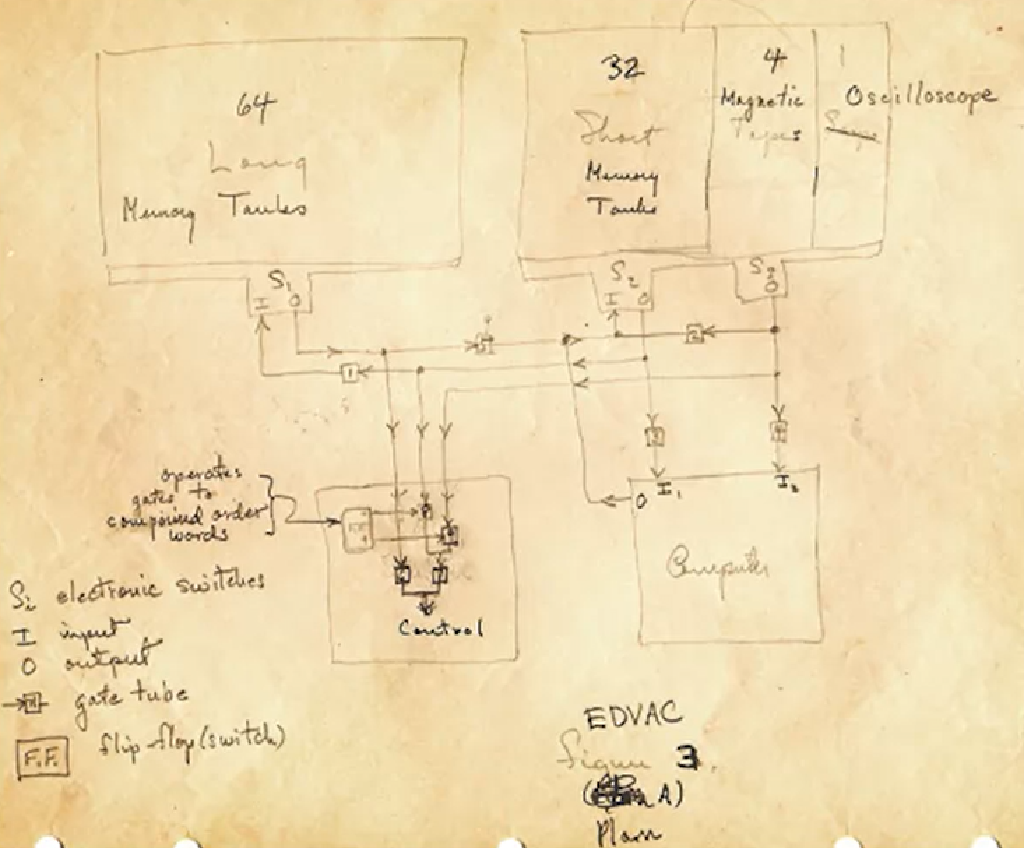 64
Long
Memory Tanks
32
Short
Memory
Tanks
4
Magnetic
Tapes
1
Oscilloscope
S₁
I O
S₂
I O
S₃
O
1
2
3
4
5
operates
gates to
compound order
words
O
I₁
I₂
Computer
Control
Sᵢ electronic switches
I input
O output
gate tube
F.F. flip-flop (switch)
EDVAC
Figure 3.
A)
Plan